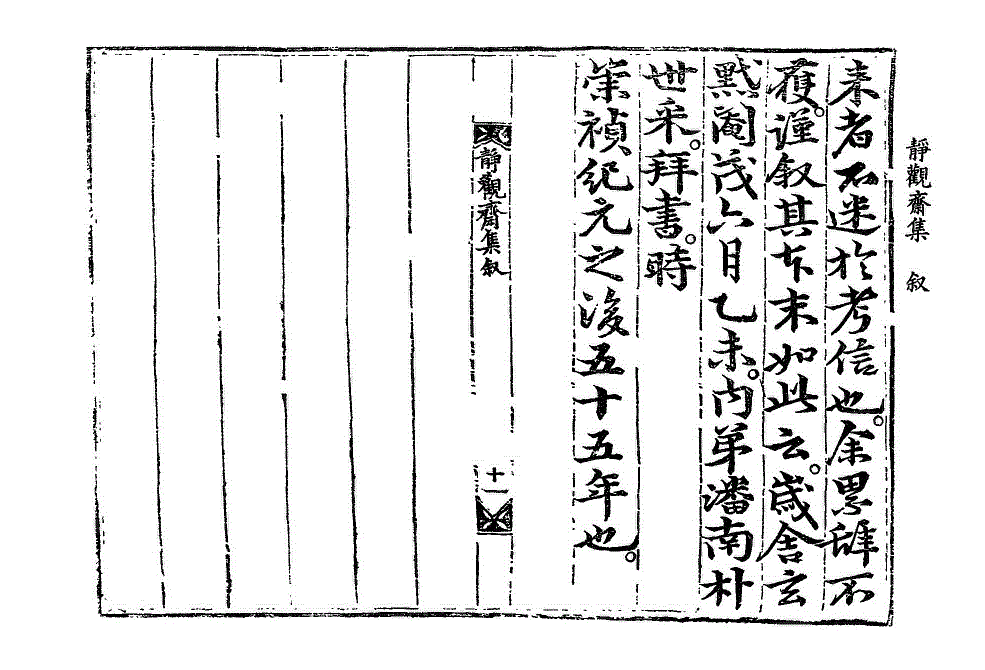 靜觀齋集　叙
来者不迷於考信也。余累辭不
獲。謹叙其夲末如此云。歲舍玄
黓閹茂六月乙未。内弟潘南朴
世采。拜書。時
崇禎紀元之後五十五年也。
靜觀齋集叙
十一